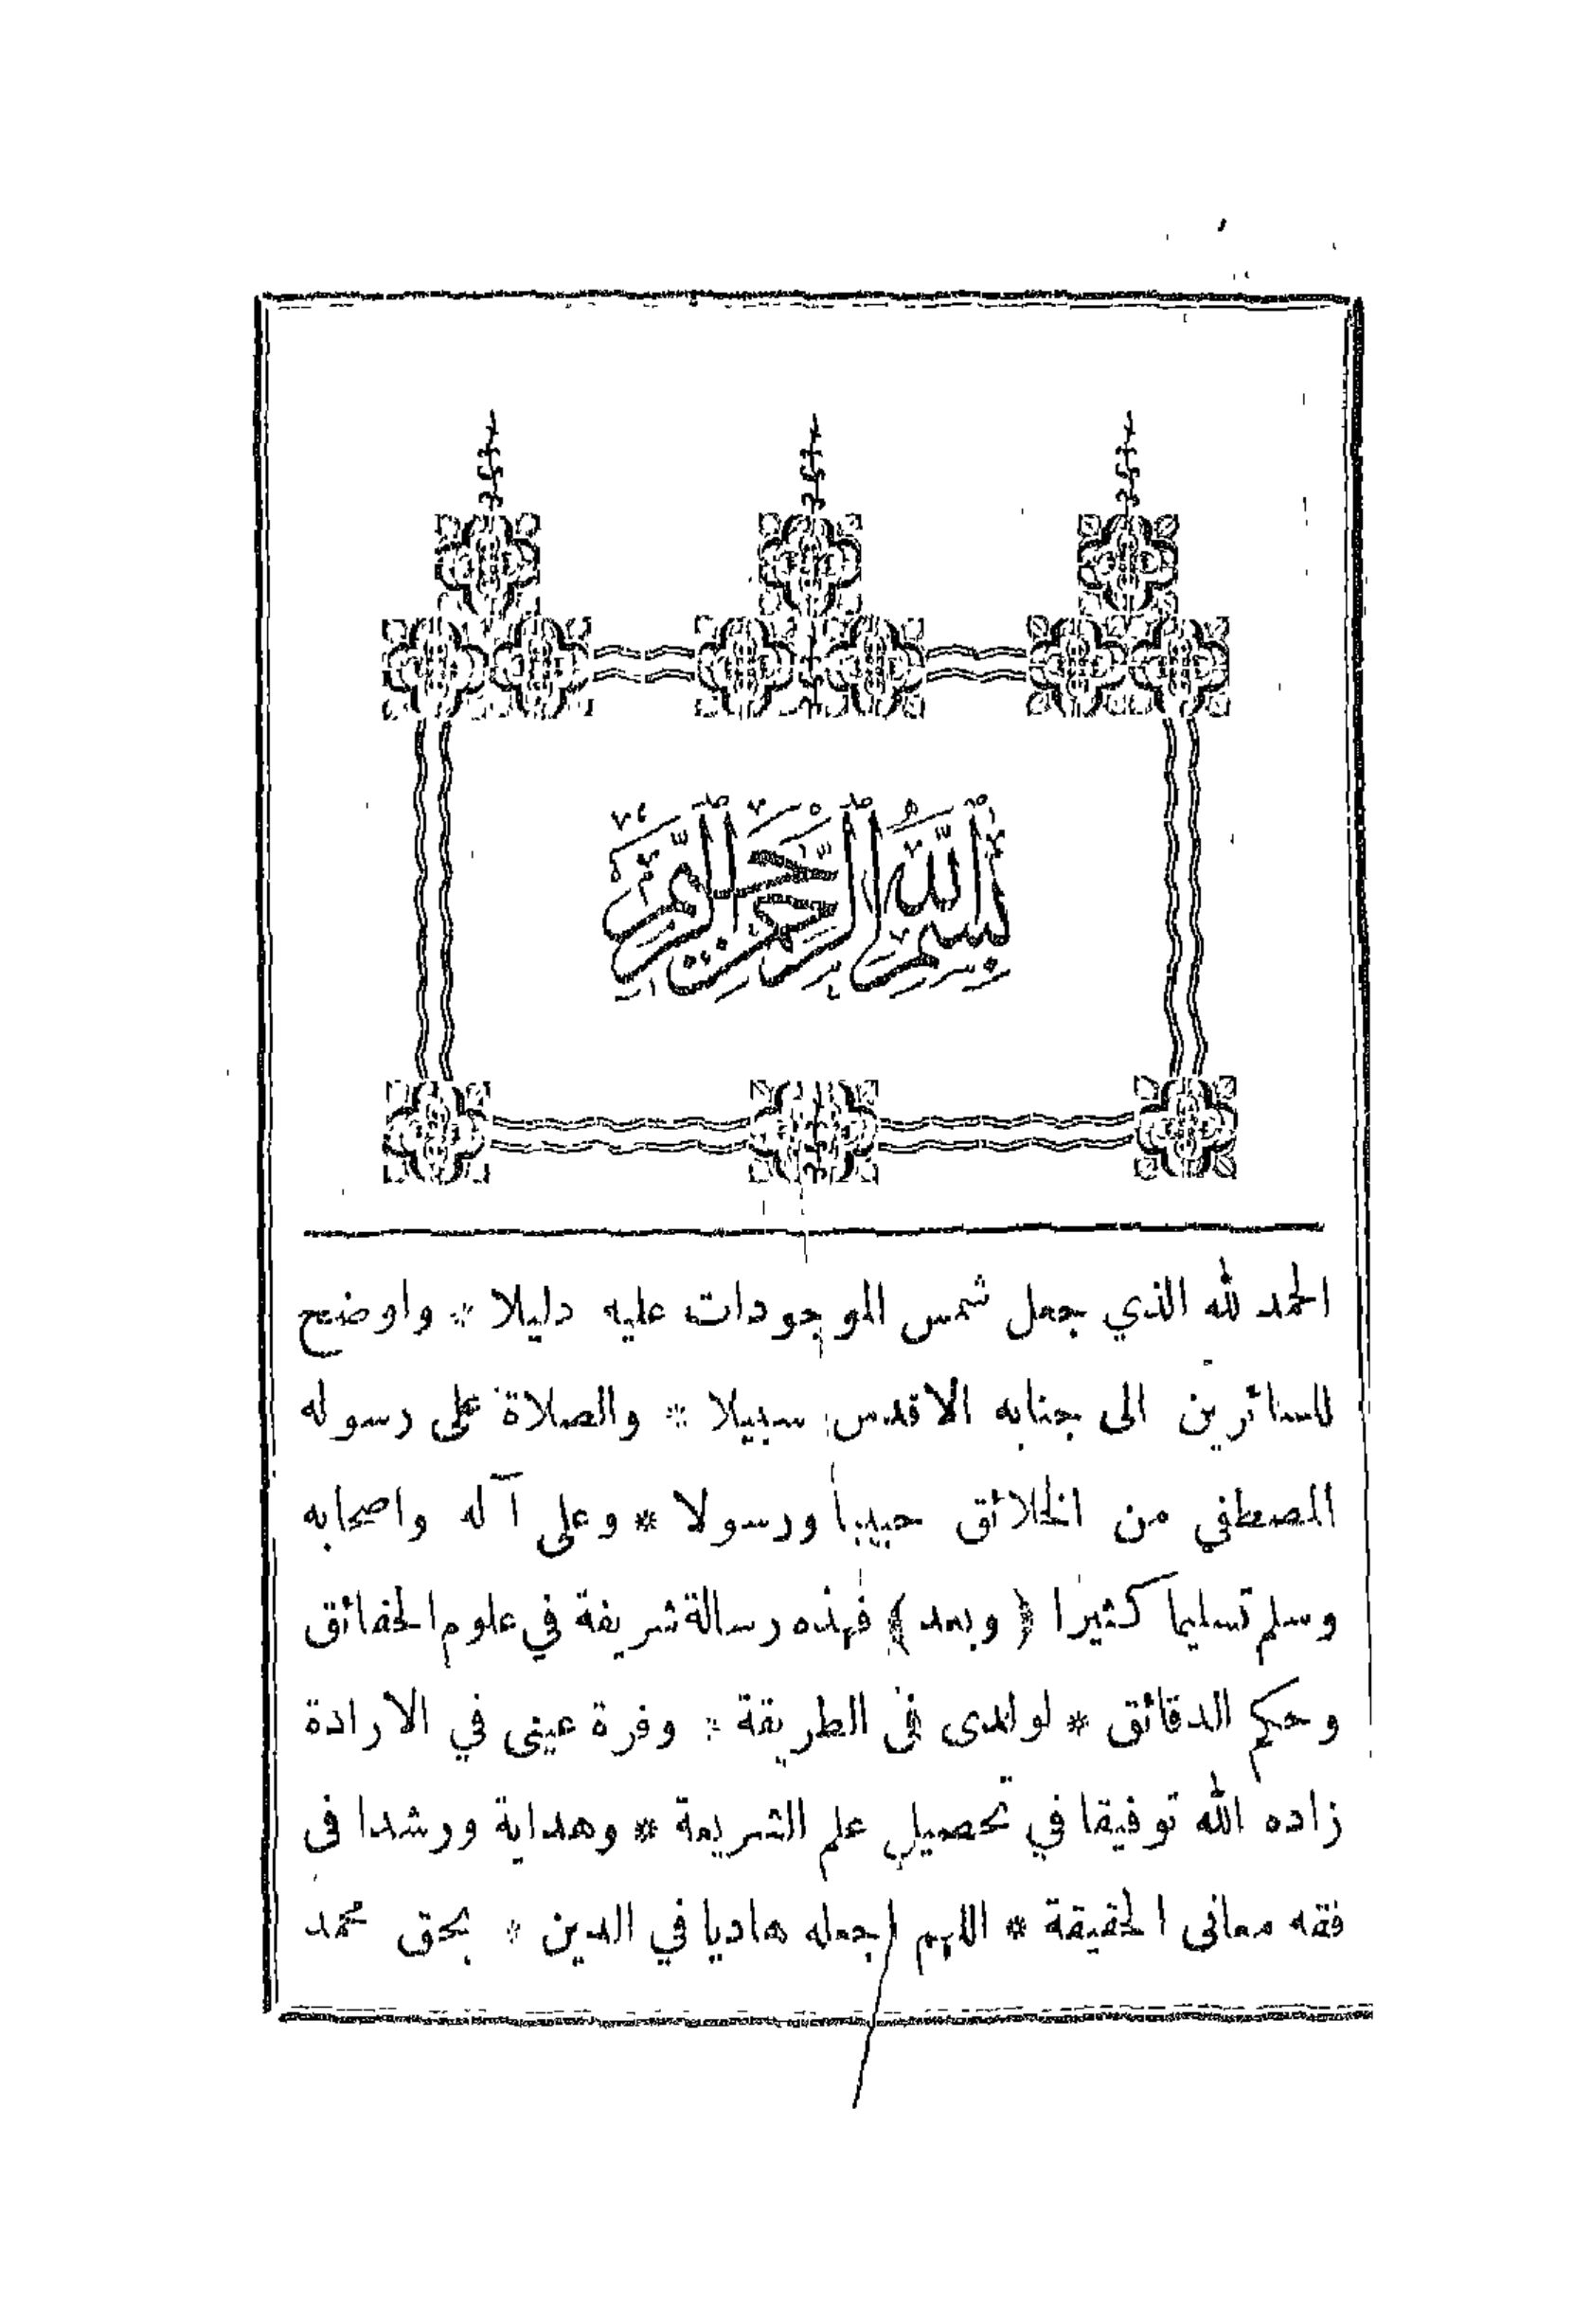 بسم الله الرحمن الرحيم
الحمد لله الذي جعل شمس الموجودات عليه دليلا * واوضح
للسائرين الى جنابه الاقدس سبيلا * والصلاة على رسوله
المصطفي من الخلائق حبيبا ورسولا * وعلى آله واصحابه
وسلم تسليما كثيرا ( وبعد ) فهذه رسالة شريفة في علوم الحقائق
وحكم الدقائق * لولدى فى الطريقة * وقرة عينى في الارادة
زاده الله توفيقا في تحصيل علم الشريعة * وهداية ورشدا فى
فقه معانى الحقيقة * اللهم اجعله هاديا في الدين * بحق محمد